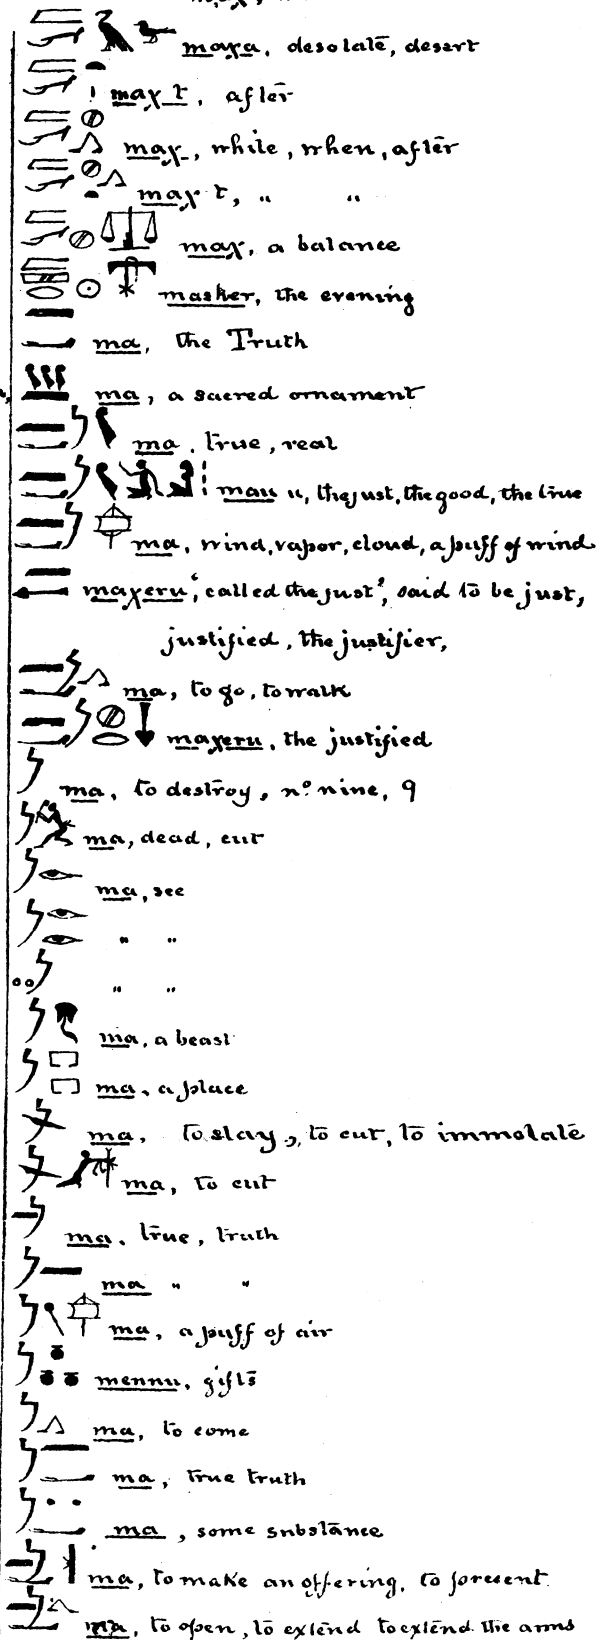 maχa, desolate, desert
maχ t, after
maχ, while, when, after
maχ t, " "
maχ, a balance
masher, the evening
ma, the Truth
ma, a sacred ornament
ma, true, real
mau u, the just, the good, the true
ma, wind, vapor, cloud, a puff of wind
maχeru, "called the just", said to be just,
justified, the justifier,
ma, to go, to walk
maχeru, the justified
ma, to destroy, nº nine, 9
ma, dead, cut
ma, see
" "
" "
ma, a beast
ma, a place
ma, to slay, to cut, to immolate
ma, to cut
ma, true, truth
ma " "
ma, a puff of air
mennu, gifts
ma, to come
ma, true truth
ma, some substance
ma, to make an offering, to present.
ma, to open, to extend to extend the arms